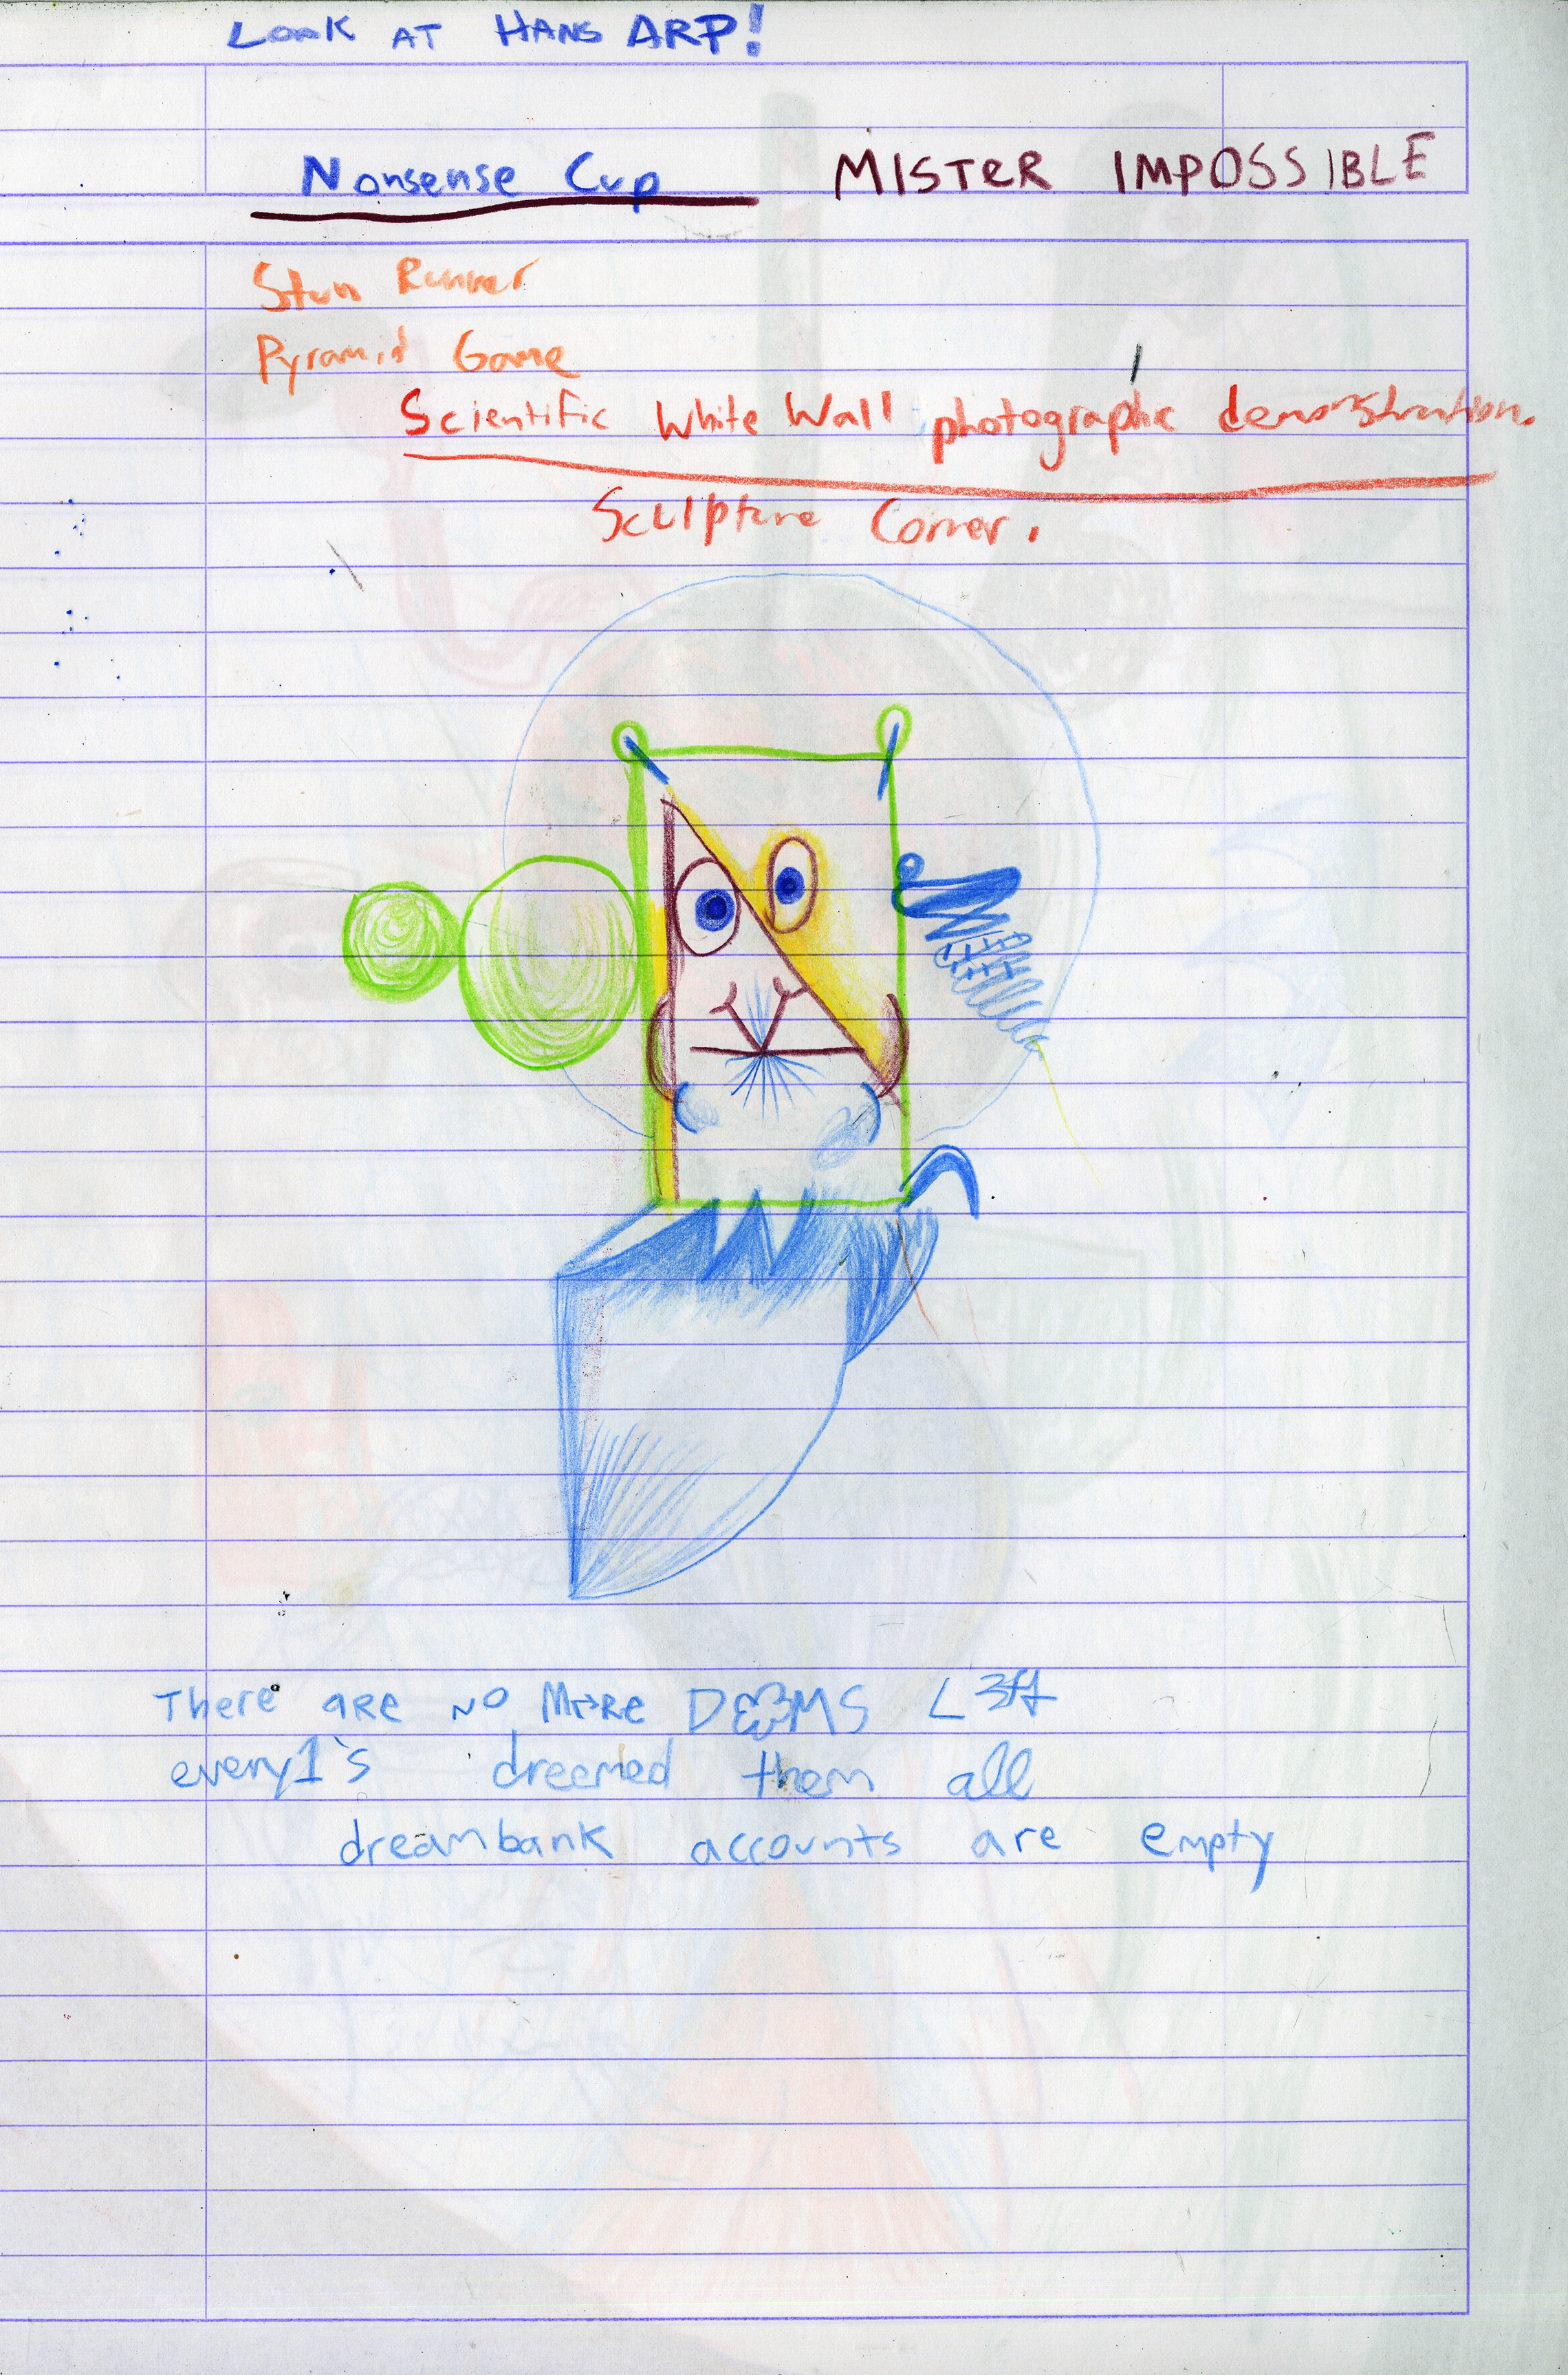 LOOK AT HANS ARP!
Nonsense Cup MISTER IMPOSSIBLE
Stun Runner
Pyramid Game
Scientific White Wall photographic demonstration.
Sculpture Corner.
There are NO More L3ft
every1's dreemed them all
dreambank accounts are empty